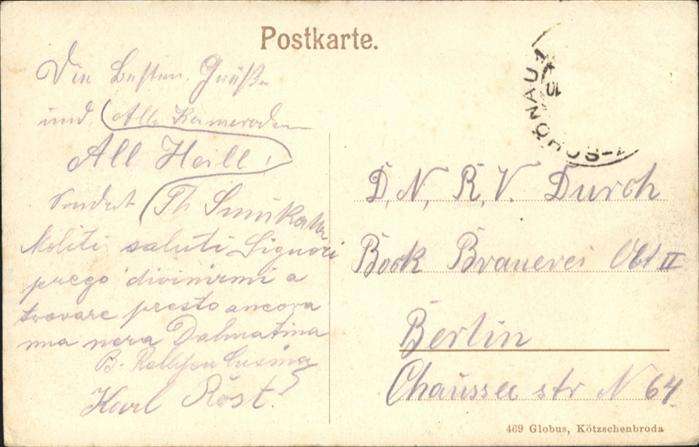 Postkarte.
Die Besten Grüße
und Alle Kameraden
All Heil!
sendet Th.
Moliti saluti Signori
prego a
trovare presto ancora
una nera Dalmatina
B.
Karl Röst.
SCHÖNAU
D, N, R, V. Durch
Bock Brauerei Abt II
Berlin
Chaussee str N 64
469 Globus, Kötzschenbroda